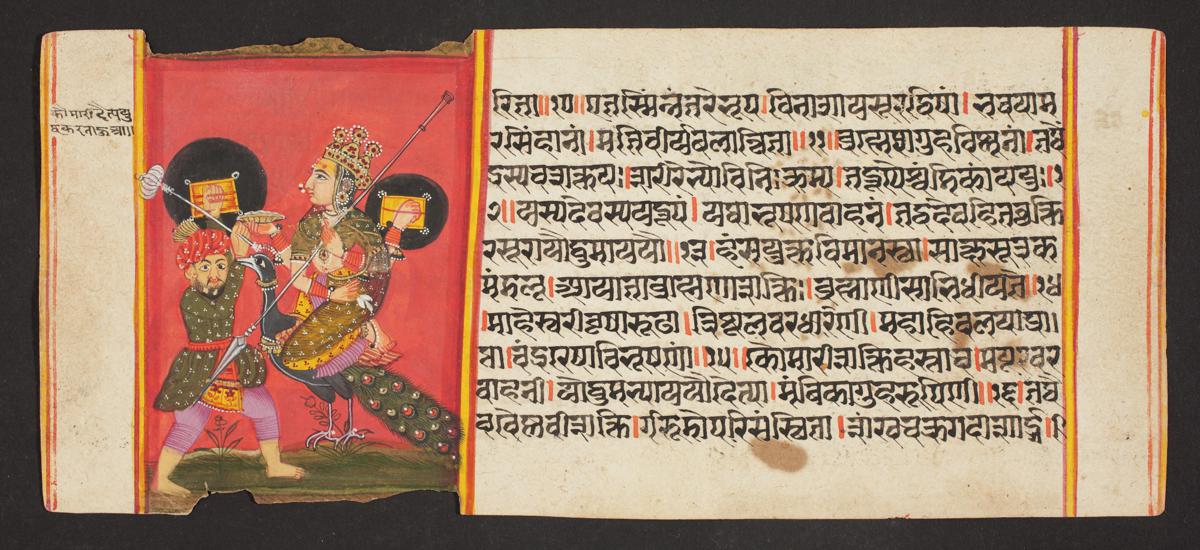 कौमारी दैत्ययु
द्धकरनाऊवा॥
रिता॥१०॥एतस्मिंन्नंतरे भूप।विनाशाय सुरद्विषां। भवयाम
रसिंहानां।मतिवीर्यबलान्विता॥११॥ब्रह्मेशगुहविष्णूनां।तथें
द्रस्य च शक्तयः।शरीरेभ्यो विनिःक्रम्य।तद्रूपैश्चंडिकां ययुः॥१
२॥यस्य देवस्य यद्रूपं।यथा भूषणवाहनं।तद्वदेव हि तच्छक्ति
रसुरायोद्धुमाययौ॥१३॥हंसयुक्तविमानस्था।साक्षसूत्रक
मंडलू।आयाता ब्रह्मणः शक्तिः।ब्रह्माणी साभिधीयते॥१४
॥माहेस्वरी वृषारूढा।त्रिशूलवरधारिणी।महाहिवलया प्रा
प्ता।चंद्ररेषाविभूषणां॥१५॥कौमारी शक्तिहस्ता च।मयूरवर
वाहनी।योद्धुमभ्याययौ दैत्या।मंविका गुहरूपिणी॥१६॥तथै
व वैष्णवी शक्ति।र्गरुडोपरि संस्थिता।शंखचक्रगदाशार्ङ्ग॥